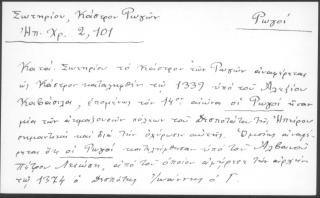 Σωτηρίου, Κάστρον Ρωγῶν
Ἠπ. Χρ. 2, 101
Ρωγοί
Κατά Σωτηρίου τό Κάστρον τῶν Ρωγῶν ἀναφέρεται
ὡς Κάστρον καταληφθέν τῷ 1339 ὑπό τοῦ Ἀλεξίου
Καβάσιλα, ἑπομένως τόν 14ον αἰῶνα οἱ Ρωγοί ἦσαν
μία τῶν πόλεων τοῦ Δεσποτάτου τῆς Ἠπείρου
σημαντική καί διά τήν ὀχύρωσιν αὐτῆς. Ὁμοίως ἀναφέ-
ρεται ὅτι οἱ Ρωγοί κατελήφθησαν ὑπό τοῦ Ἀλβανοῦ
Πέτρου Λεώση, ἀπό τοῦ ὁποίου τήν ἀρχήν
τῷ 1374 ὁ Δεσπότης Ἰωάννης ὁ Γ.